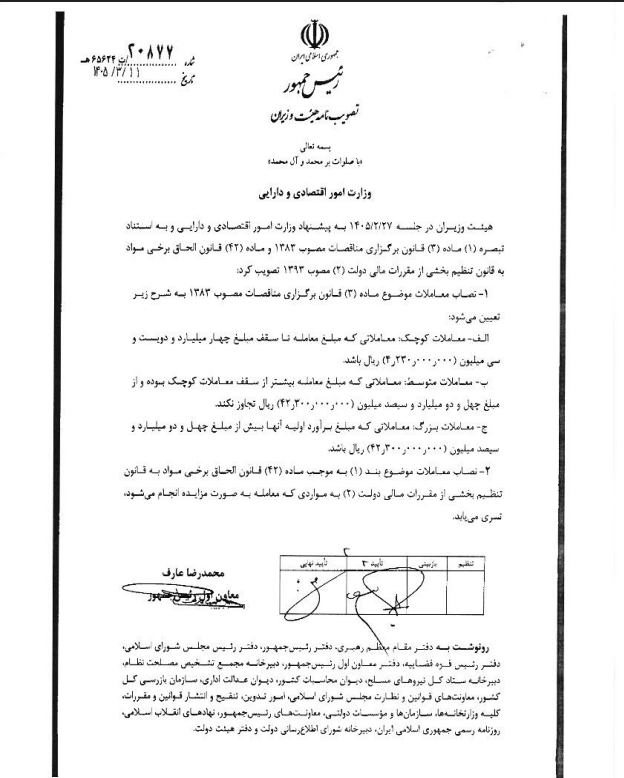 جمهوری اسلامی ایران
رئیس جمهور
تصویب نامه هیئت وزیران
شماره ۲۰۸۷۷/ت۶۵۶۲۴هـ
تاریخ ۱۴۰۵/۳/۱۱
بسمه تعالی
«با صلوات بر محمد و آل محمد»
وزارت امور اقتصادی و دارایی
هیئت وزیران در جلسه ۱۴۰۵/۲/۲۷ به پیشنهاد وزارت امور اقتصادی و دارایی و به استناد
تبصره (۱) ماده (۳) قانون برگزاری مناقصات مصوب ۱۳۸۳ و ماده (۴۲) قانون الحاق برخی مواد
به قانون تنظیم بخشی از مقررات مالی دولت (۲) مصوب ۱۳۹۳ تصویب کرد:
۱- نصاب معاملات موضوع ماده (۳) قانون برگزاری مناقصات مصوب ۱۳۸۳ به شرح زیر
تعیین می‌شود:
الف- معاملات کوچک: معاملاتی که مبلغ معامله تا سقف مبلغ چهار میلیارد و دویست و
سی میلیون (۴٫۲۳۰٫۰۰۰٫۰۰۰) ریال باشد.
ب- معاملات متوسط: معاملاتی که مبلغ معامله بیشتر از سقف معاملات کوچک بوده و از
مبلغ چهل و دو میلیارد و سیصد میلیون (۴۲٫۳۰۰٫۰۰۰٫۰۰۰) ریال تجاوز نکند.
ج- معاملات بزرگ: معاملاتی که مبلغ برآورد اولیه آنها بیش از مبلغ چهل و دو میلیارد و
سیصد میلیون (۴۲٫۳۰۰٫۰۰۰٫۰۰۰) ریال باشد.
۲- نصاب معاملات موضوع بند (۱) به موجب ماده (۴۲) قانون الحاق برخی مواد به قانون
تنظیم بخشی از مقررات مالی دولت (۲) به مواردی که معامله به صورت مزایده انجام می‌شود،
تسری می‌یابد.
تنظیم بازبینی تأیید ۲ تأیید نهایی
محمدرضا عارف
معاون اول رئیس‌جمهور
رونوشت به دفتر مقام معظم رهبری، دفتر رئیس‌جمهور، دفتر رئیس مجلس شورای اسلامی،
دفتر رئیس قوه قضاییه، دفتر معاون اول رئیس‌جمهور، دبیرخانه مجمع تشخیص مصلحت نظام،
دبیرخانه ستاد کل نیروهای مسلح، دیوان محاسبات کشور، دیوان عدالت اداری، سازمان بازرسی کل
کشور، معاونت‌های قوانین و نظارت مجلس شورای اسلامی، امور تدوین، تنقیح و انتشار قوانین و مقررات،
کلیه وزارتخانه‌ها، سازمان‌ها و مؤسسات دولتی، معاونت‌های رئیس‌جمهور، نهادهای انقلاب اسلامی،
روزنامه رسمی جمهوری اسلامی ایران، دبیرخانه شورای اطلاع‌رسانی دولت و دفتر هیئت دولت.